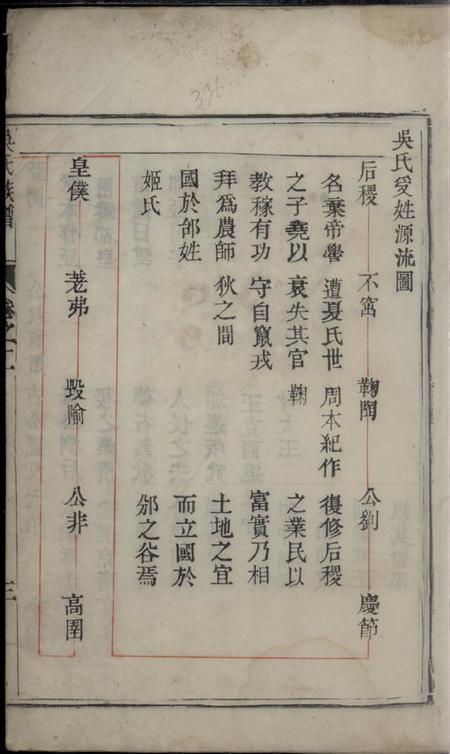 336
吳氏受姓源流圖
后稷 不窋 鞠陶 公劉 慶節
名棄帝嚳 遭夏氏世 周本紀作 復修后稷
之子堯以 衰失其官 鞠 之業民以
教稼有功 守自竄戎 富實乃相
拜爲農師 狄之間 土地之宜
國於邰姓 而立國於
姬氏 邠之谷焉
皇僕 差弗 毀隃 公非 高圉
吳氏族譜